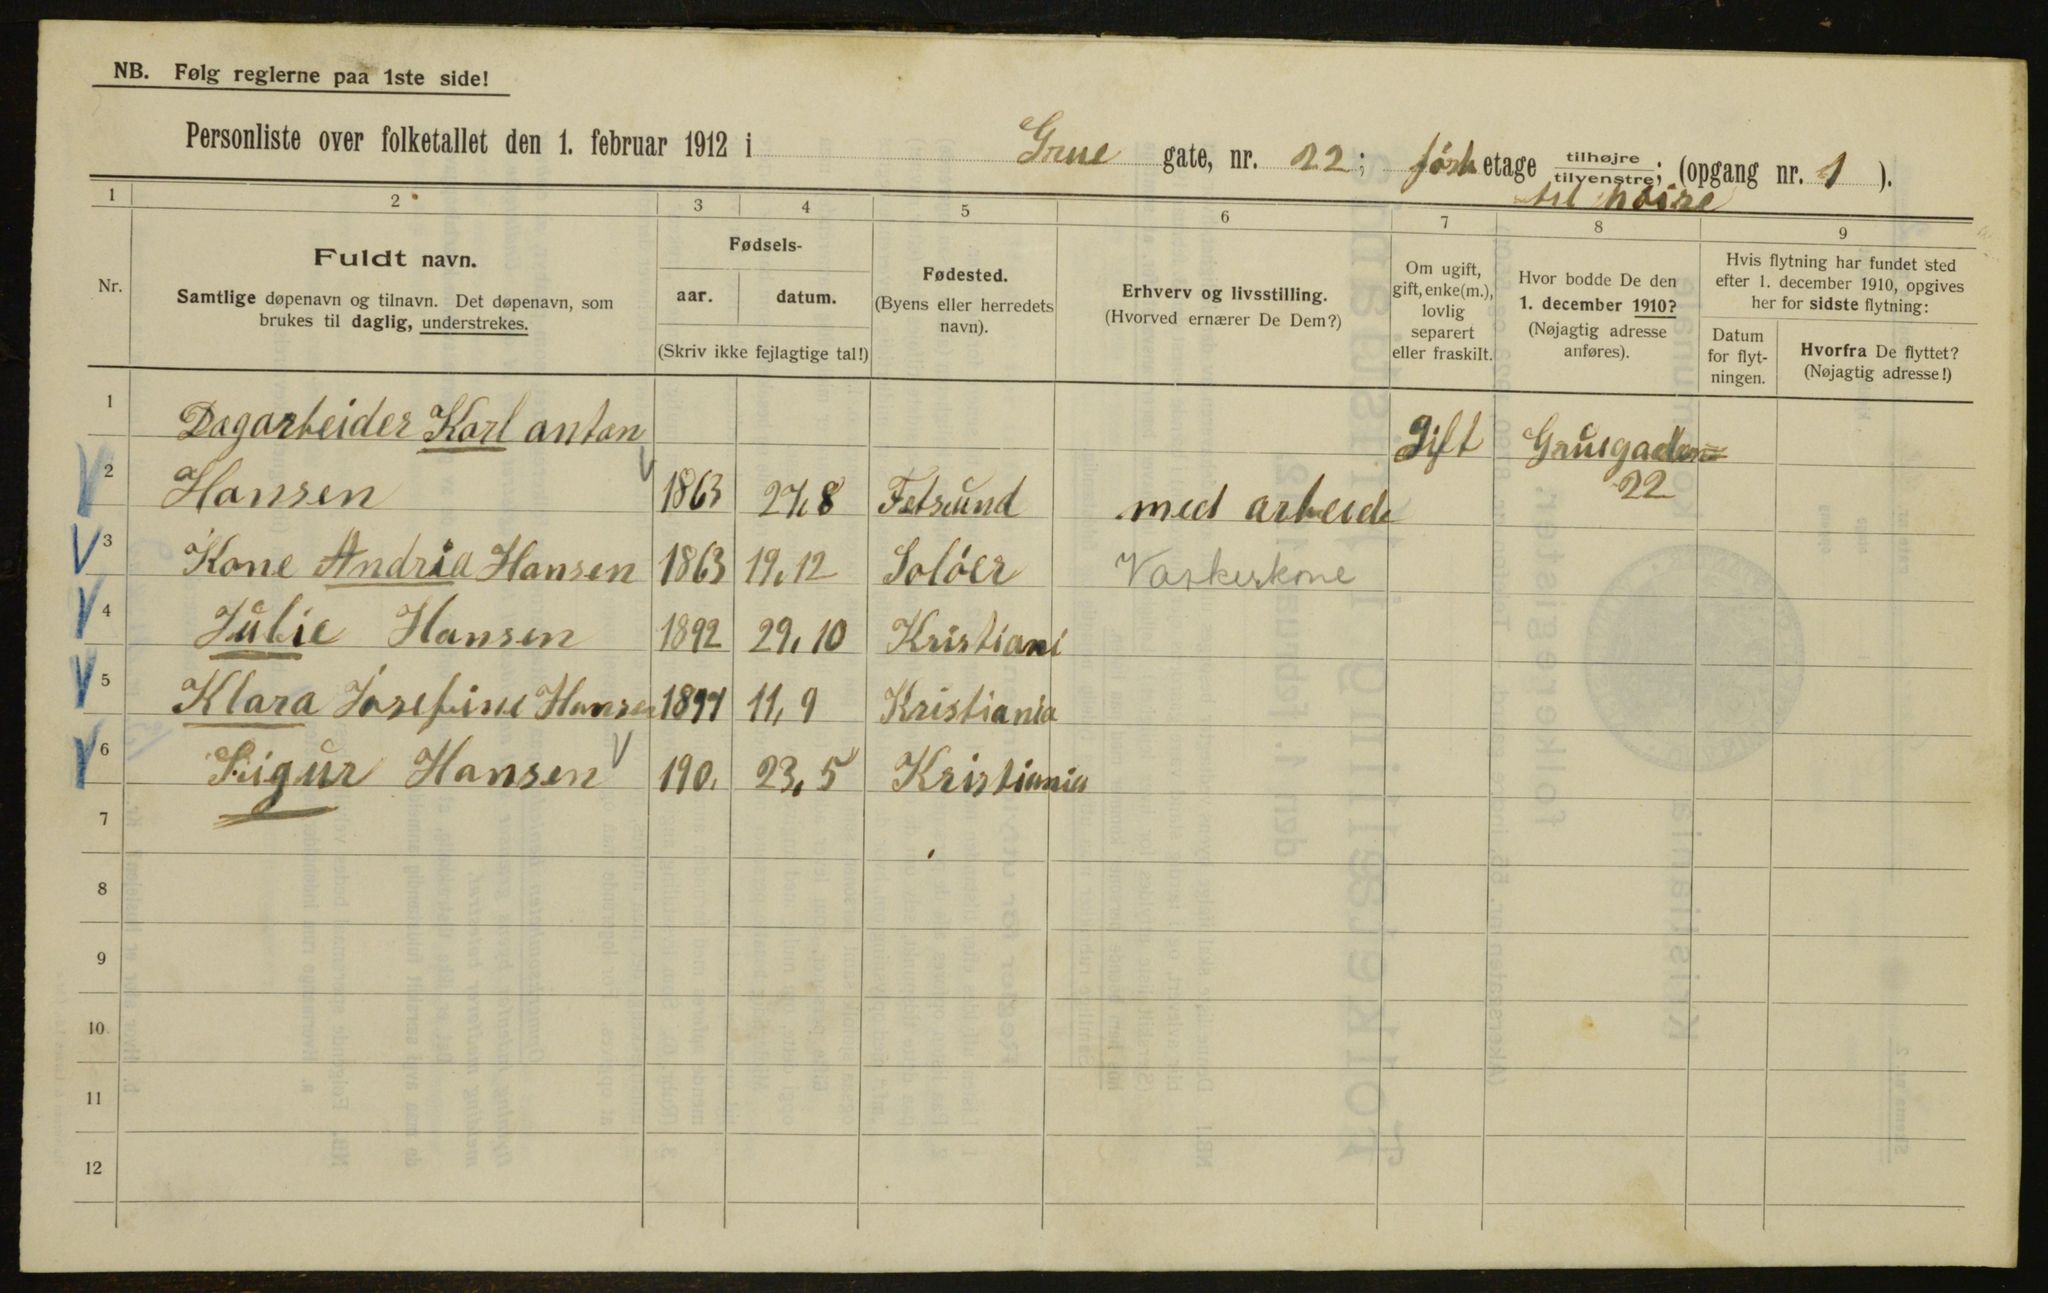 NB. Følg reglerne paa 1ste side!
Personliste over folketallet den 1. februar 1912 i Grue gate, nr. 22; først etage tilhøjre tilvenstre; (opgang nr. 1 ).
til høire
1 2 3 4 5 6 7 8 9
Nr.
Fuldt navn.
Samtlige døpenavn og tilnavn. Det døpenavn, som
brukes til daglig, understrekes.
Fødsels-
aar. datum.
(Skriv ikke fejlagtige tal!)
Fødested.
(Byens eller herredets
navn).
Erhverv og livsstilling.
(Hvorved ernærer De Dem?)
Om ugift,
gift, enke(m.),
lovlig
separert
eller fraskilt.
Hvor bodde De den
1. december 1910?
(Nøjagtig adresse
anføres).
Hvis flytning har fundet sted
efter 1. december 1910, opgives
her for sidste flytning:
Datum
for flyt-
ningen.
Hvorfra De flyttet?
(Nøjagtig adresse!)
1 Dagarbeider Karl anton Gift Gruegaden
22
2 Hansen 1863 27,8 Fetsund med arbeide
3 Kone Andria Hansen 1863 19,12 Soløer Vaskerkone
4 Julie Hansen 1892 29,10 Kristiani
5 Klara Josefine Hansen 1897 11,9 Kristiania
6 Sigur Hansen 190. 23,5 Kristiania
7
8
9
10
11
12